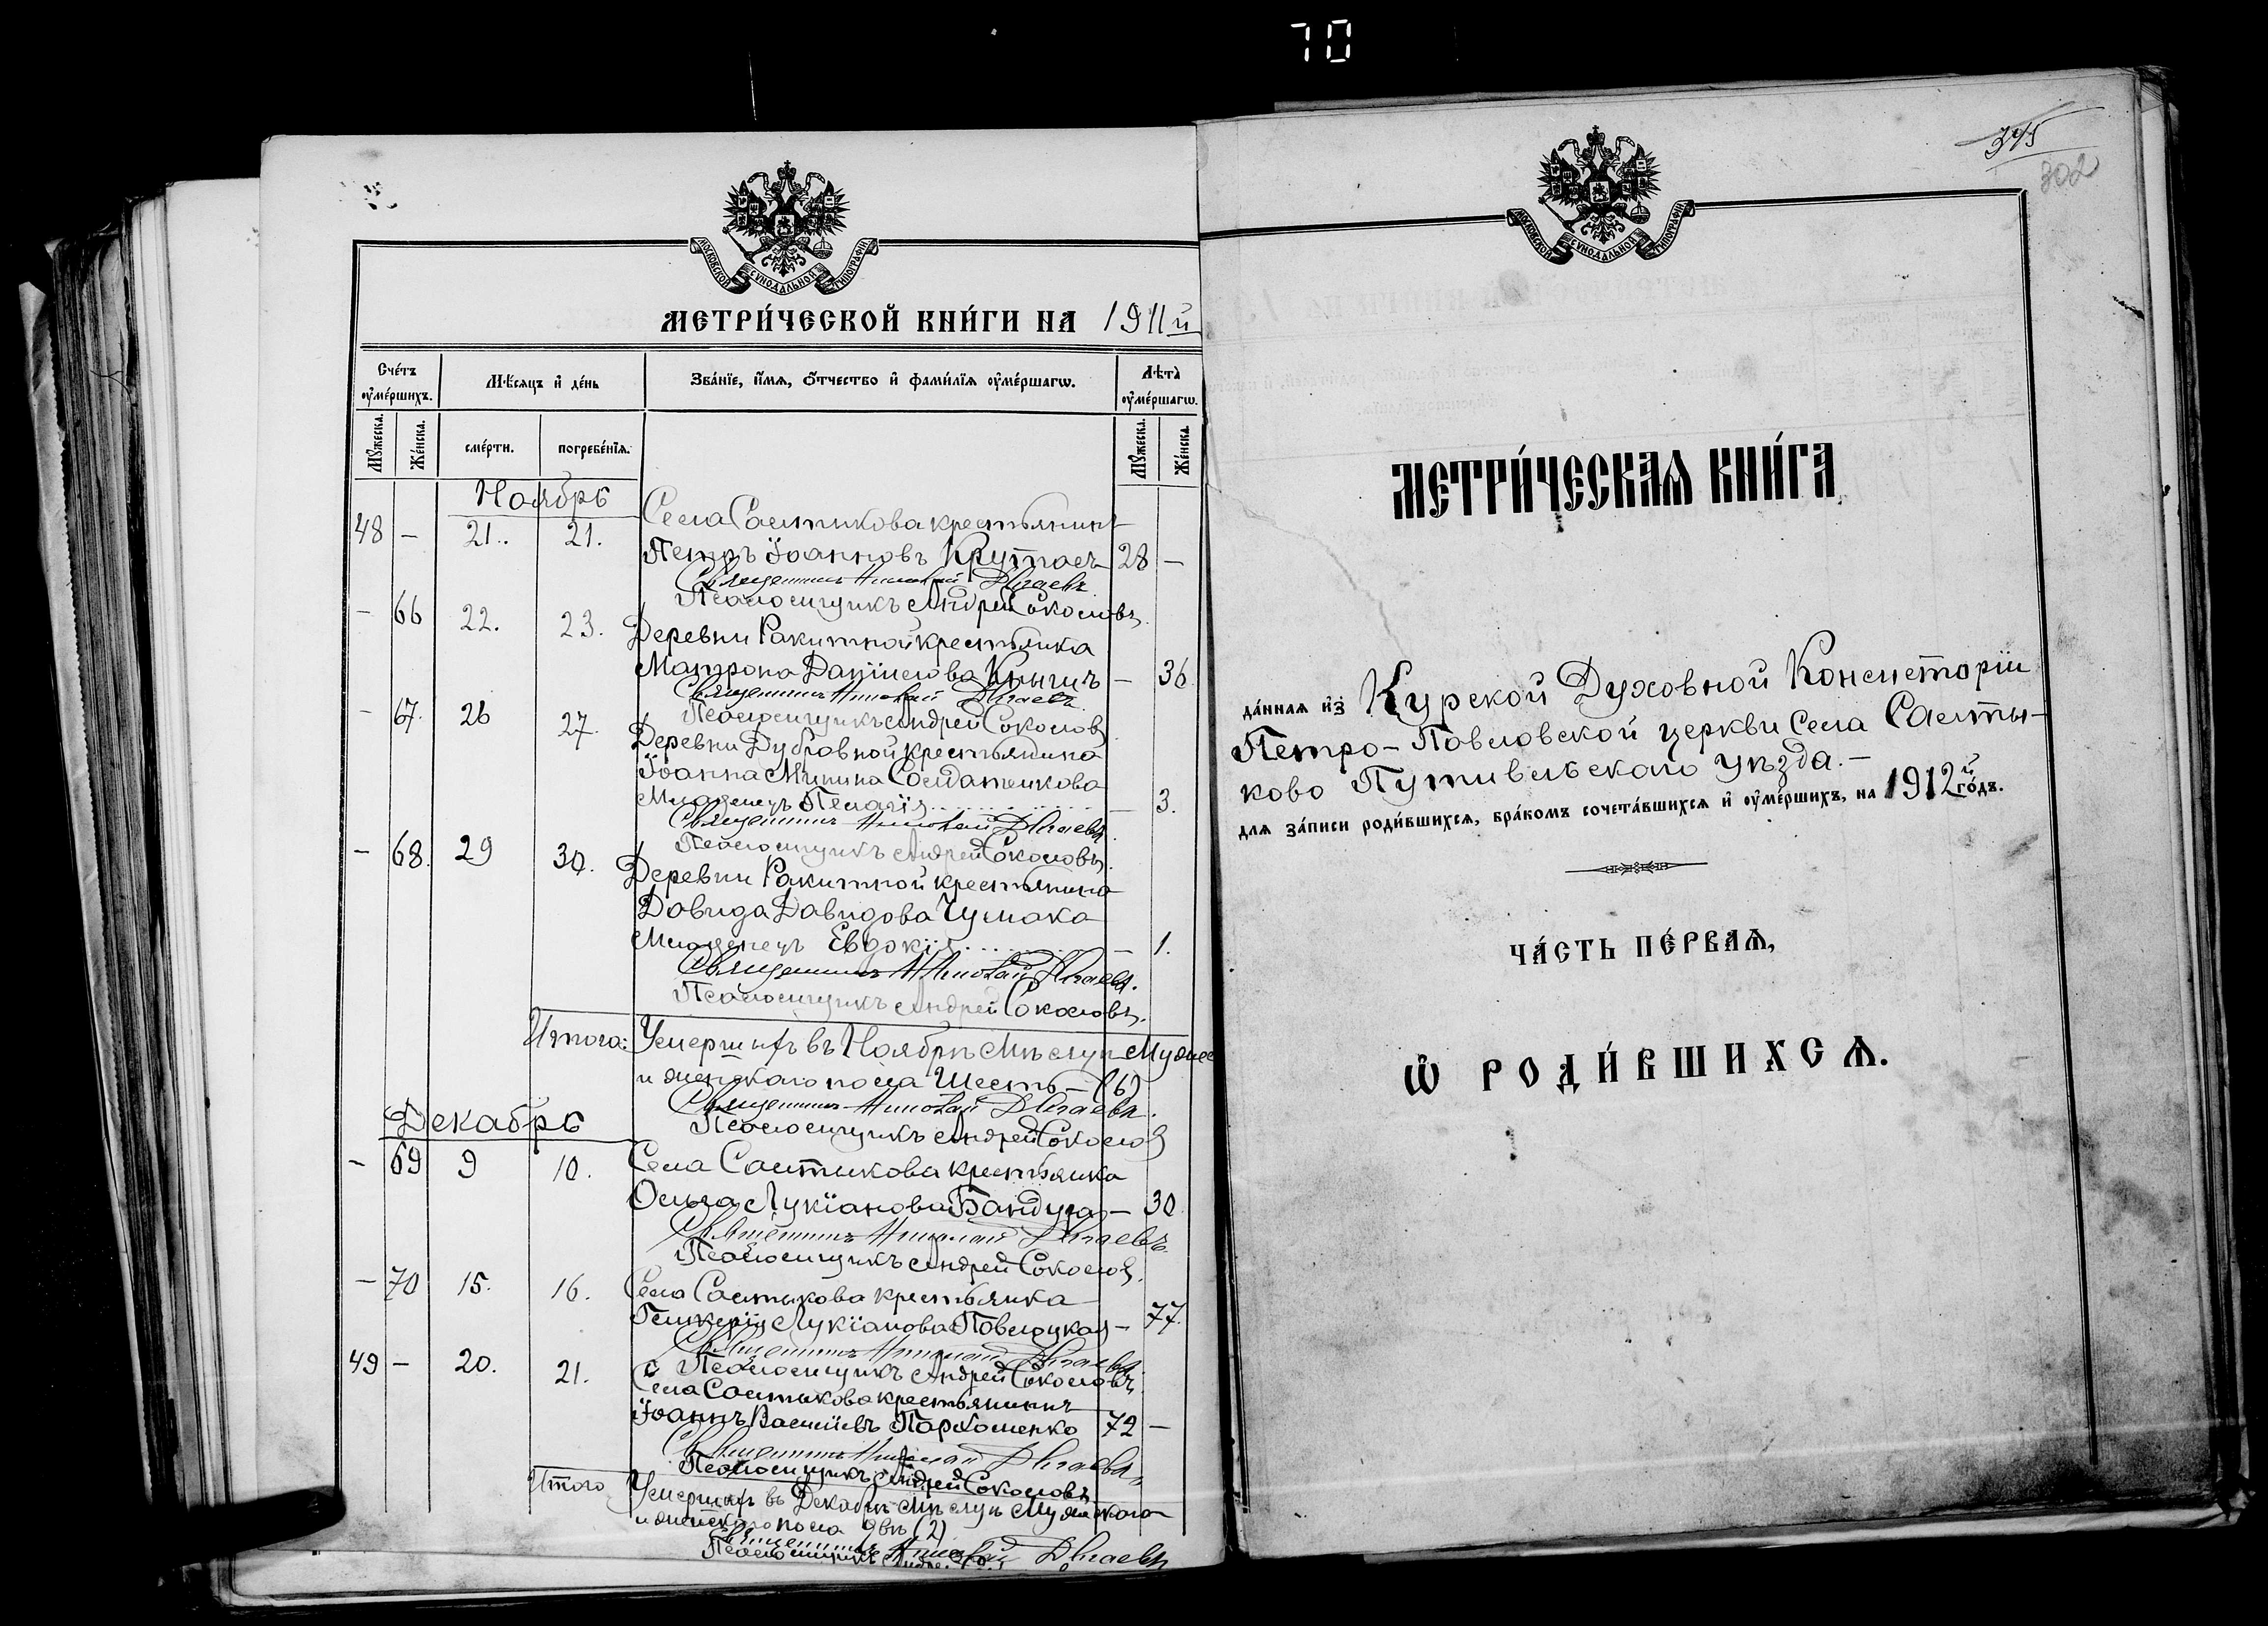 70
МОСКОВСКОЙ СѴНОДАЛЬНОЙ ТИПОГРАФІИ
МЕТРИ́ЧЕСКОЙ КНИ́ГИ НА 1911й
Сче́тъ оу҆ме́ршихъ. Мѣ́сяцъ и҆ де́нь Зва́нїе, и҆́мѧ, ѻ҆́тчество и҆ фами́лїѧ оу҆ме́ршагѡ. Лѣ́та оу҆ме́ршагѡ.
Мꙋ́жеска. Же́нска. сме́рти. погребе́нїѧ. Мꙋ́жеска. Же́нска.
Ноябрь
48 – 21. 21. Села Салтыкова крестьянинъ
Петръ Іоанновъ Крутась 28 –
Священникъ Николай Дьгаевъ
Псаломщикъ Андрей Соколовъ.
– 66 22. 23. Деревни Ракитной крестьянка
Матрона Даніилова Кныгичъ – 36
Священникъ Николай
Псаломщикъ Андрей Соколовъ
– 67. 26 27. Деревни Дубровной крестьянина
Іоанна Минина Солдатенкова
Младенецъ Пелагія – 3.
Священникъ Николай
Псаломщикъ Андрей Соколовъ.
– 68. 29 30. Деревни Ракитной крестьянина
Давида Давидова Чумака
Младенецъ Евдокія – 1.
Священникъ Николай
Псаломщикъ Андрей Соколовъ.
Итого: Умершихъ въ Ноябрѣ мѣсяцѣ Мужес
и женскаго пола Шесть – (6)
Священникъ Николай
Псаломщикъ Андрей Соколовъ
Декабрь
– 69 9 10. Села Салтыкова крестьянка
Ольга Лукіанова Бандура – 30
Священникъ Николай
Псаломщикъ Андрей Соколовъ.
– 70 15. 16. Села Салтыкова крестьянка
Гликерія Лукіанова Повлоцкая – 77.
Священникъ Николай
Псаломщикъ Андрей Соколовъ
49 – 20. 21. Села Салтыкова крестьянинъ
Іоаннъ Василіевъ Пархоменко 72 –
Священникъ Николай
Псаломщикъ Андрей Соколовъ
Итого Умершихъ въ Декабрѣ мѣсяцѣ Мужскаго
и женскаго пола двѣ (2)
Священникъ Николай
Псаломщикъ
345
302
МОСКОВСКОЙ СѴНОДАЛЬНОЙ ТИПОГРАФІИ
МЕТРИ́ЧЕСКАѦ КНИ́ГА
да́ннаѧ и҆з̾ Курской Духовной Консисторіи
Петро-Повловской церкви села Салты-
ково Путивльскаго уѣзда. –
длѧ за́писи роди́вшихсѧ, бра́комъ сочета́вшихсѧ и҆ оу҆ме́ршихъ, на 1912й го́дъ.
ЧА́СТЬ ПЕ́РВАѦ,
Ѡ҆ РОДИ́ВШИХСѦ.